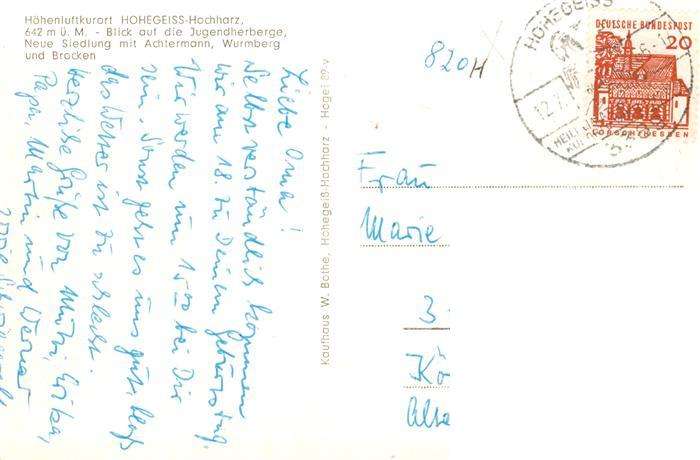 Höhenluftkurort HOHEGEISS-Hochharz,
642 m ü. M. - Blick auf die Jugendherberge,
Neue Siedlung mit Achtermann, Wurmberg
und Brocken
820H
HOHEGEISS
12.7.
DEUTSCHE BUNDESPOST
20
LORSCH/HESSEN
Kaufhaus W. Bothe, Hohegeiß-Hochharz - Hagel 89 v
Liebe Oma!
Selbstverständlich kommen
wir am 18. zu Deinem Geburtstag.
Wir werden um 15⁰⁰ bei Dir
sein. Sonst geht es uns gut, bloß
das Wetter ist zu schlecht.
Herzliche Grüße von Mutti, Erika,
Papa, Martin und Werner
Frau
Marie
3
Kö
Alte